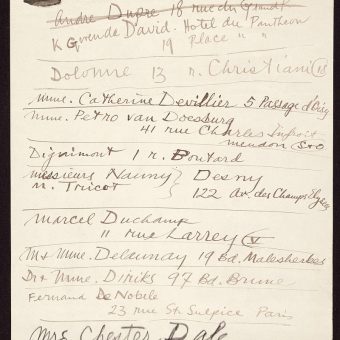 Andre Dupre 18 rue du
K Gwenda David - Hotel du Pantheon
19 Place " "
Dolonne 13 r. Christiani (18)
Mme. Catherine Devillier 5 Passage
Mme. Petro van Doesburg
41 rue Charles Infroit
meudon S+O
Dignimont 1 r. Boutard
messieurs Nauny } Desny
M. Tricot } 122 Av. des Champs Elysees
Marcel Duchamp
11 rue Larrey (V)
Mr + Mme. Delaunay 19 Bd. Malesherbes
Dr + Mme. Diriks 97 Bd. Brune
Fernand De Nobele
23 rue St. Sulpice Paris
Mrs Chester Dale